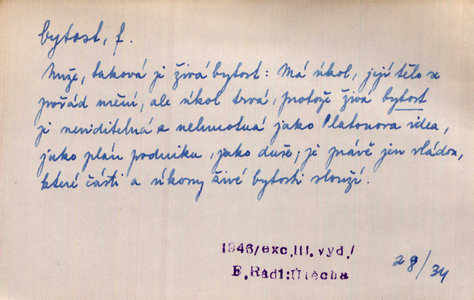 bytost, f.
Nuže, taková je živá bytost: Má úkol, její tělo se
pořád mění, ale úkol trvá, protože živá bytost
je neviditelná a nehmotná jako Platonova idea,
jako plán podniku, jako duše; je právě jen vládou,
které části a úkony živé bytosti slouží.
1946/exc.III.vyd./
E.Rádl:Útěcha
28/34